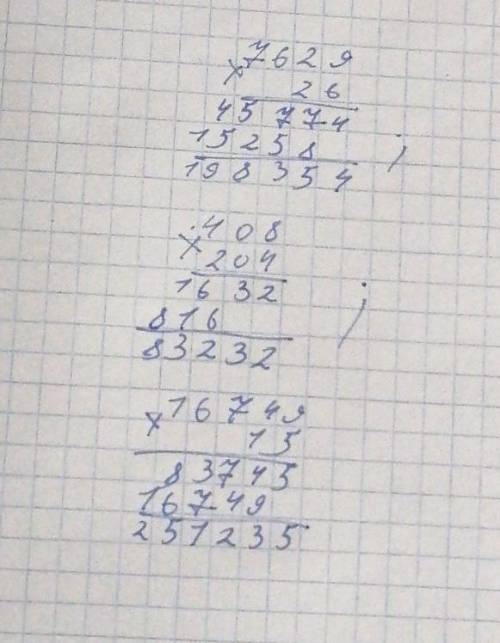 × 7629
26
45774
15258 ;
198354
× 408
204
1632 ;
816
83232
× 16749
15
83745
16749
251235